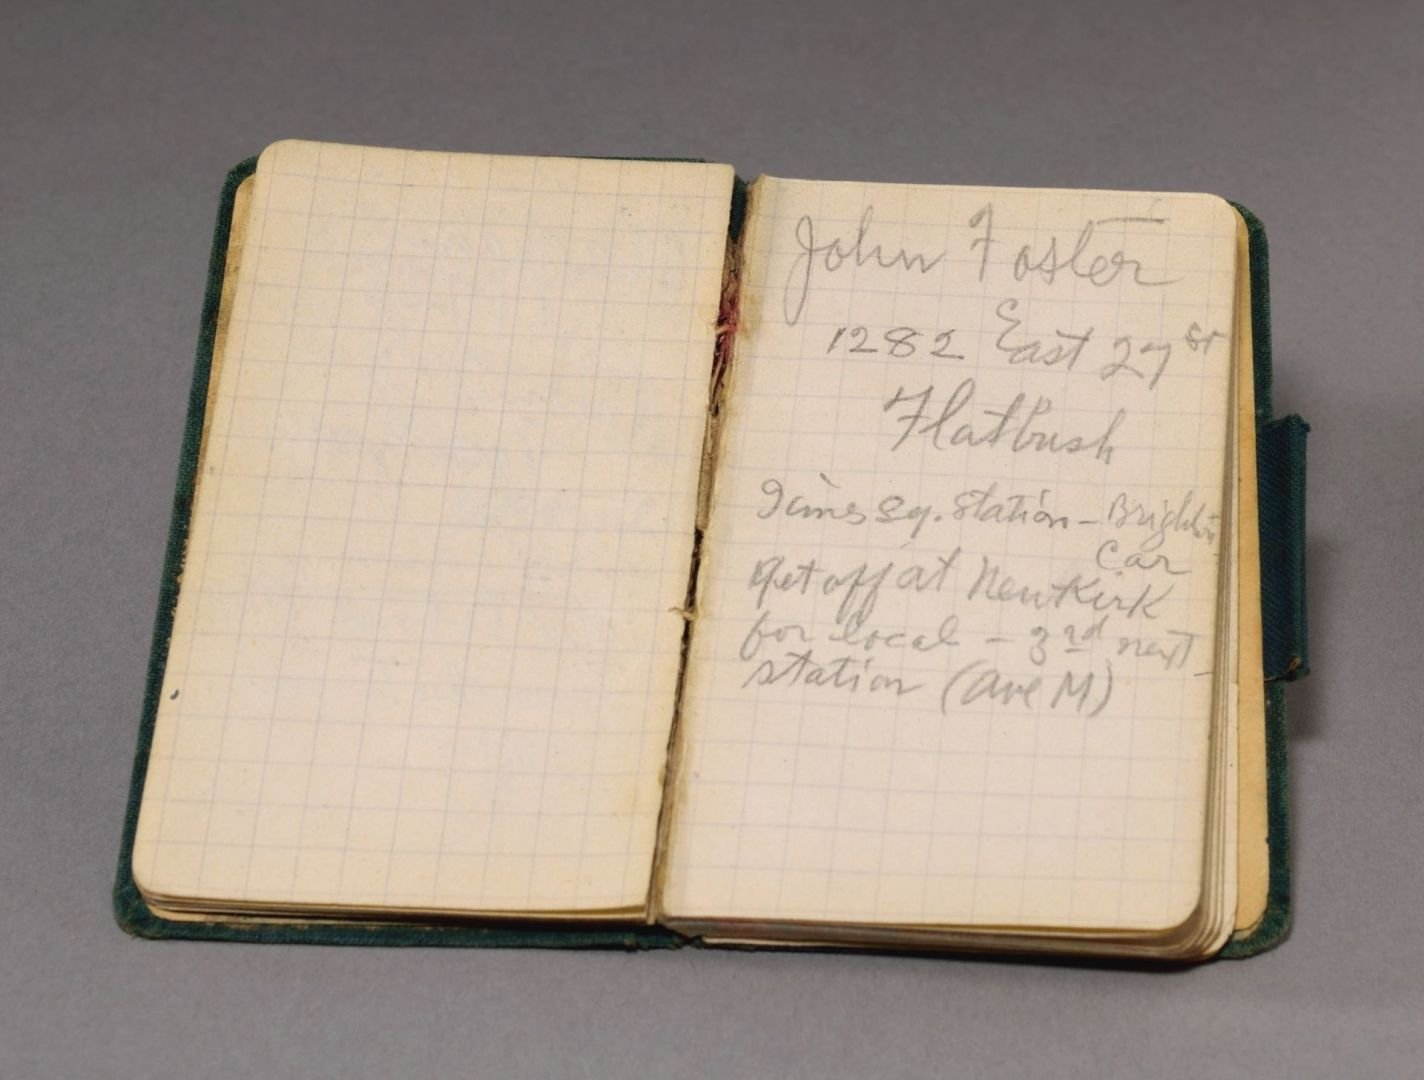 John Foster
1282 East 27 St
Flatbush
Times Sq. Station - Brighton
Car
Get off at Newkirk
for local - 3rd next
station (Ave M)